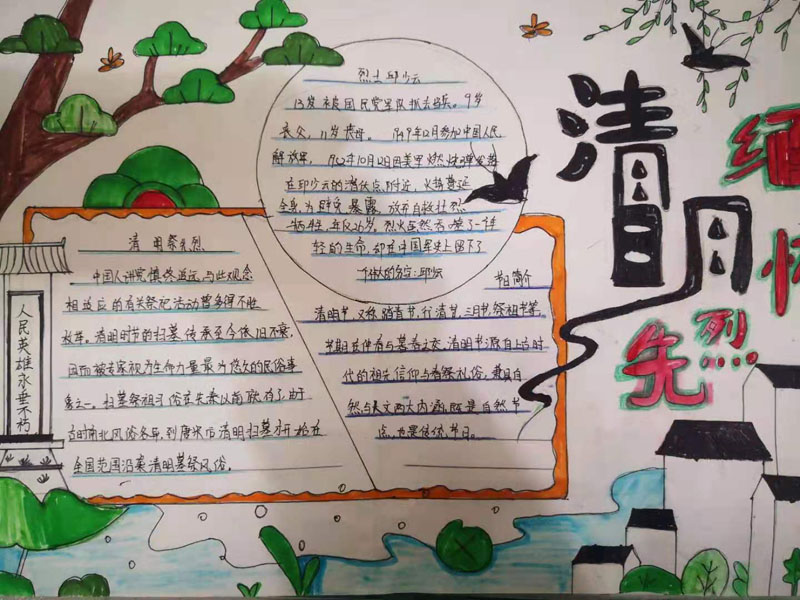 清明
缅怀
先烈…
烈士邱少云
13岁被国民党军队抓去当兵。9岁
丧父，11岁丧母。1949年12月参加中国人民
解放军，1952年10月12日因美军燃烧弹
在邱少云的潜伏点附近，火势蔓延
全身，为避免暴露，放弃自救壮烈
牺牲，年仅26岁。烈火虽然去了一年
轻的生命，却在中国军史上留下了
个伟大的名字:邱少云
清明祭先烈
中国人讲究慎终追远，与此观念
相适应的有关祭祀活动曾多得不胜
枚举。清明时节的扫墓传承至今依旧不衰，
因而被专家视为生命力量最为悠久的民俗事
象之一。扫墓祭祖习俗在先秦以前就有了，由于
古时南北风俗各异，到唐宋后清明扫墓才开始在
全国范围沿袭清明墓祭风俗。
节日简介
清明节，又称踏青节、行清节、三月节、祭祖节等，
节期在仲春与暮春之交。清明节源自上古时
代的祖先信仰与春祭礼俗，兼具自
然与人文两大内涵，既是自然节
点，也是传统节日。
人民英雄永垂不朽